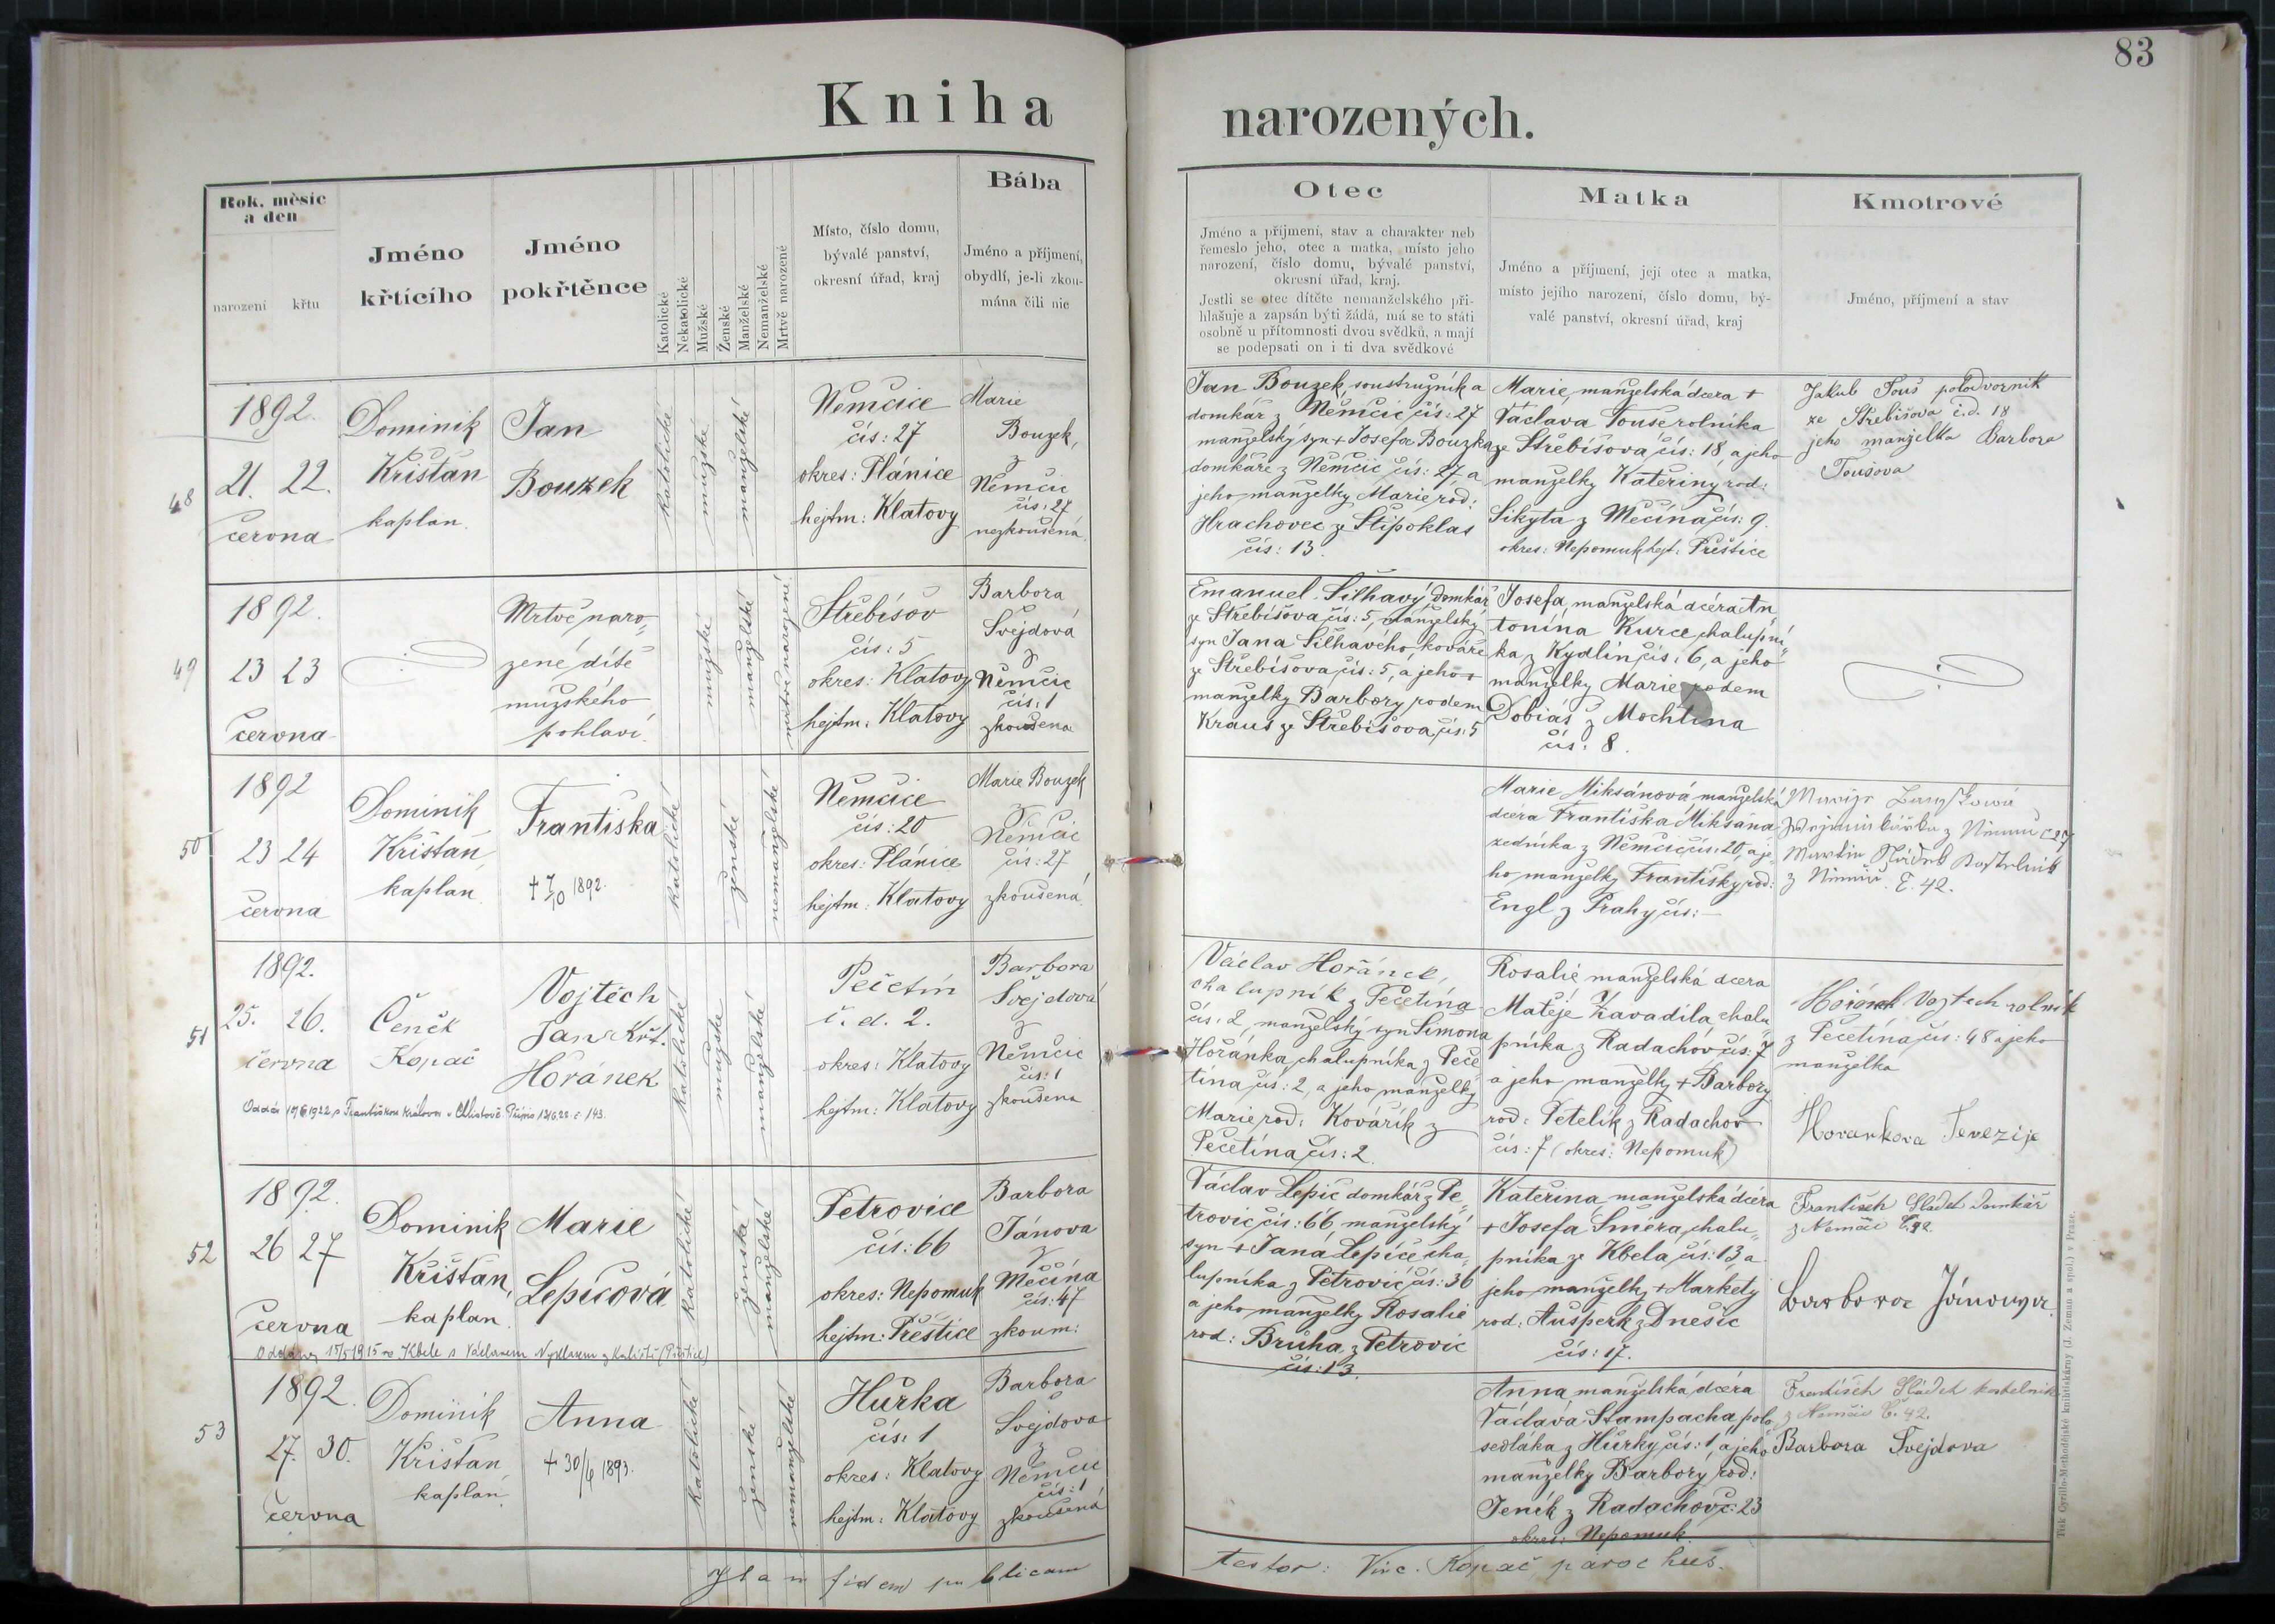 83
Kniha narozených.
Rok, měsíc
a den
narození
křtu
Jméno
křtícího
Jméno
pokřtěnce
Katolické
Nekatolické
Mužské
Ženské
Manželské
Nemanželské
Mrtvě narozené
Místo, číslo domu,
bývalé panství,
okresní úřad, kraj
Bába
Jméno a příjmení,
obydlí, je-li zkou-
mána čili nic
Otec
Jméno a příjmení, stav a charakter neb
řemeslo jeho, otec a matka, místo jeho
narození, číslo domu, bývalé panství,
okresní úřad, kraj.
Jestli se otec dítěte nemanželského při-
hlašuje a zapsán býti žádá, má se to státi
osobně u přítomnosti dvou svědků, a mají
se podepsati on i ti dva svědkové
Matka
Jméno a příjmení, její otec a matka,
místo jejího narození, číslo domu, bý-
valé panství, okresní úřad, kraj
Kmotrové
Jméno, příjmení a stav
48
1892.
21. 22.
června
Dominik
Křišťan
kaplan.
Jan
Bouzek
katolické
mužské
manželské
Němčice
čís: 27
okres: Plánice
hejtm: Klatovy
Marie
Bouzek,
z
Němčic
čís: 27
nezkoušená.
Jan Bouzek, soustružník a
domkář z Němčic čís: 27
manželský syn + Josefa Bouzka
domkáře z Němčic čís: 27 a
jeho manželky Marie rod:
Hrachovec ze Štipoklas
čís: 13.
Marie, manželská dcera +
Václava Touše rolníka
ze Střebišova čís: 18, a jeho
manželky Kateřiny rod:
Sikyta z Měčína čís: 9.
okres: Nepomuk hejt: Přeštice
Jakub Touš
ze Střebišova č.d. 18
jeho manželka Barbora
Toušova
49
1892.
23 23
června
Mrtvě naro-
zené dítě
mužského
pohlaví.
mužské
manželské
mrtvě narozené
Střebišov
čís: 5
okres: Klatovy
hejtm: Klatovy
Barbora
Švejdová
z
Němčic
čís: 1
zkoušena
Emanuel Šilhavý, domkář
ze Střebišova čís: 5, manželský
syn Jana Šilhavého kováře
ze Střebišova čís: 5, a jeho +
manželky Barbory rodem
Kraus ze Střebišova čís: 5
Josefa, manželská dcera An
tonína Kurce chalupní
ka z Kydlin čís: 6, a jeho
manželky Marie rodem
Dobiáš z Mochtína
čís: 8.
50
1892
23 24
června
Dominik
Křišťan,
kaplan
Františka
+ 7/10 1892.
katolické
ženské
nemanželské
Němčice
čís: 20
okres: Plánice
hejtm: Klatovy
Marie Bouzek
z
Němčic
čís: 27
zkoušená.
Marie Mikšánová manželská
dcera Františka Mikšána
zedníka z Němčic čís: 20, a je-
ho manželky Františky rod:
Engl z Prahy čís: –
z Němčic č. 42.
51
1892.
25. 26.
června
Čeněk
Kopač
Vojtěch
Jan Křt.
Hořánek
katolické
mužské
manželské
Pečetín
č. d. 2.
okres: Klatovy
hejtm: Klatovy
Barbora
Švejdová
z
Němčic
čís: 1
zkoušena
Václav Hořánek,
chalupník z Pečetína
čís: 2, manželský syn Šimona
Hořánka, chalupníka z Peče
tína čís: 2, a jeho manželky
Marie rod: Kovářík z
Pečetína čís: 2.
Rosalie manželská dcera
Matěje Zavadila, chalu
pníka z Radachov čís: 7
a jeho manželky + Barbory
rod: Petelík z Radachov
čís: 7 (okres: Nepomuk)
Hořánek Vojtech rolnik
z Pečetína čís: 48 a jeho
manželka
Horankova Terezije
52
1892.
26 27
června
Dominik
Křišťan,
kaplan.
Marie
Lepičová
katolické
ženská
manželské
Petrovice
čís: 66
okres: Nepomuk
hejtm: Přeštice
Barbora
Jánova
z
Měčína
čís: 47
zkoum:
Václav Lepič domkář z Pe-
trovic čís: 66, manželský
syn + Jana Lepiče cha-
lupníka z Petrovic čís: 36
a jeho manželky Rosalie
rod: Brůha, z Petrovic
čís: 13.
Kateřina, manželská dcera
+ Josefa Šmera, chalu-
pníka ze Kbela čís: 13 a
jeho manželky + Markety
rod: Aušperk z Dnešic
čís: 17.
František Sládek domkář
z Nemčic č. 92.
Barbora
53
1892.
27. 30.
června
Dominik
Křišťan
kaplan.
Anna
+ 30/6 1893.
katolické
ženské
nemanželské
Hůrka
čís: 1
okres: Klatovy
hejtm: Klatovy
Barbora
Švejdova
z
Němčic
čís: 1
zkoušená
Anna, manželská dcera
Václava Štampacha, polo
sedláka z Hůrky čís: 1, a jeho
manželky Barbory rod:
Jeník z Radachov č: 23
okres: Nepomuk.
František Sládek kostelnik
z Nemčic č. 42.
Barbora Švejdova
In fidem publicam
testor: Vinc. Kopač, parochus.
Tisk Cyrillo-Methodějské knihtiskárny (J. Zeman a spol.) v Praze.